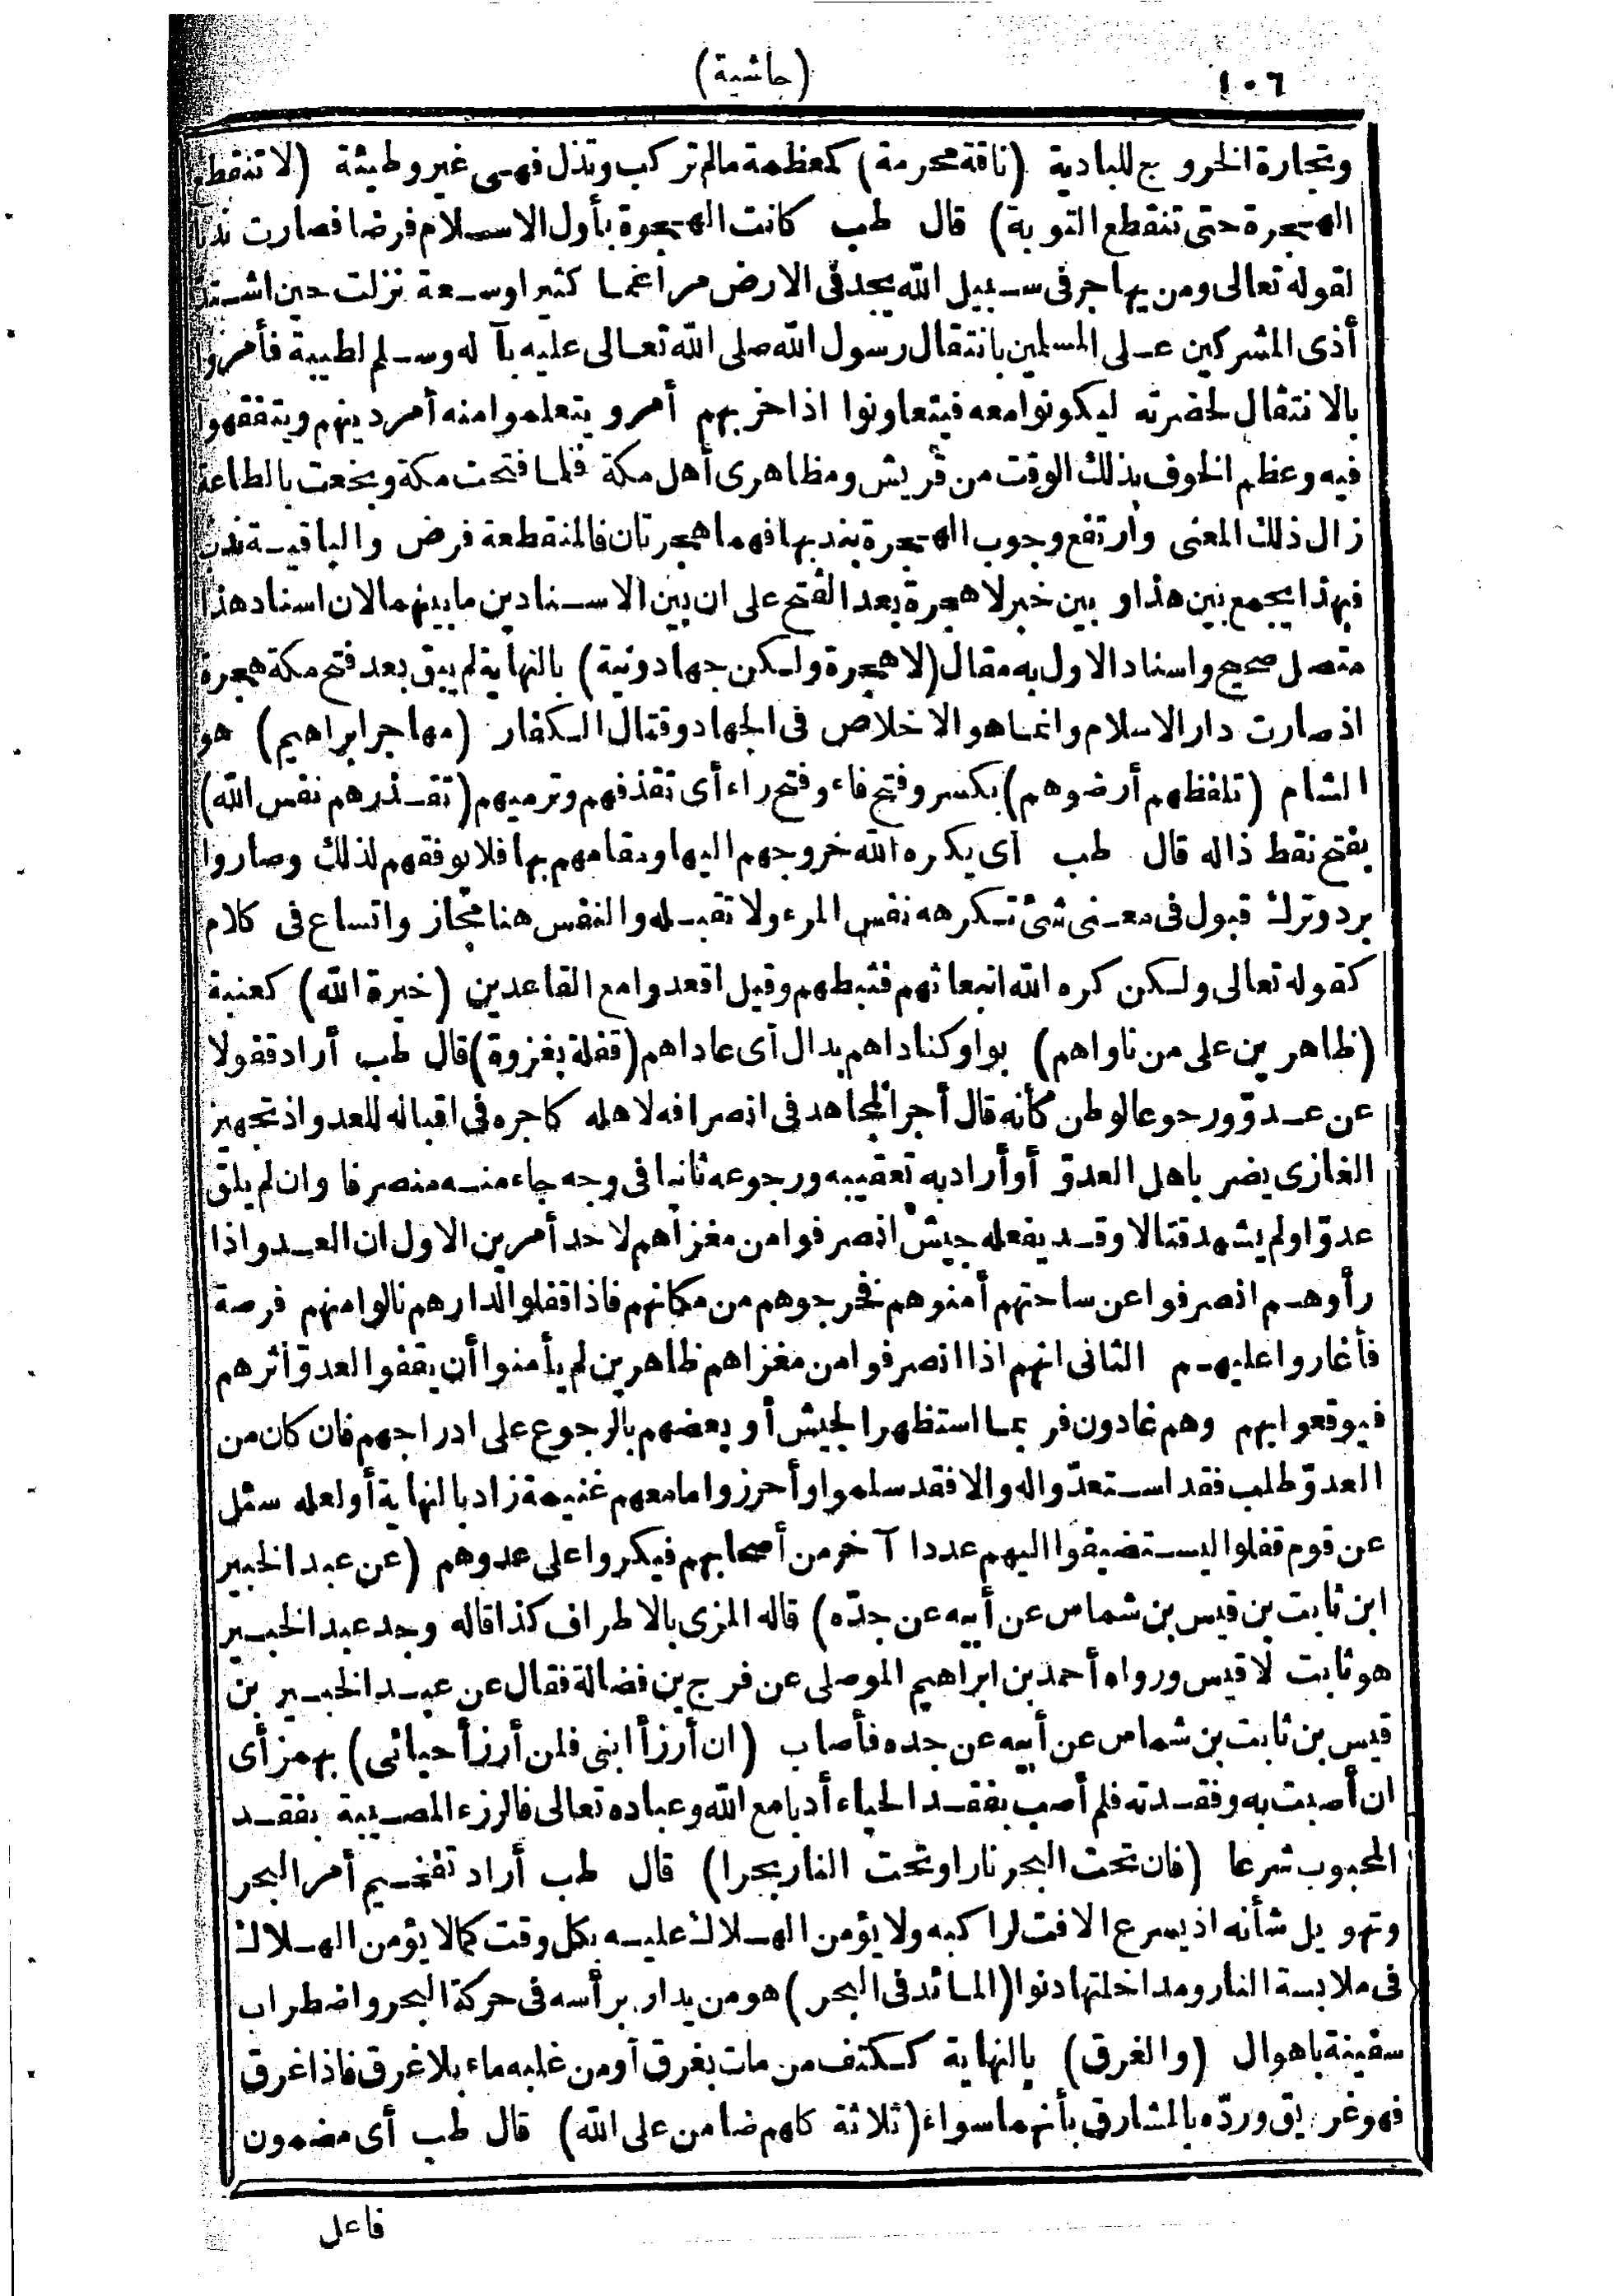 ١٠٦
(حاشية)
وتجارة الخروج للبادية (ناقة محرمة) كمعظمة مالم تركب وتذل فهى غير وطيئة (لا تنقطع
الهجرة حتى تنقطع التوبة) قال طب كانت الهجرة بأول الاسلام فرضا فصارت ندبا
لقوله تعالى ومن يهاجر فى سبيل الله يجد فى الارض مراغما كثيرا وسعة نزلت حين اشتد
أذى المشركين على المسلمين بانتقال رسول الله صلى الله تعالى عليه بآ له وسلم لطيبة فأمروا
بالانتقال لحضرته ليكونوا معه فيتعاونوا اذا حزبهم أمر ويتعلموا منه أمر دينهم ويتفقهوا
فيه وعظم الخوف بذلك الوقت من قريش ومظاهرى أهل مكة فلما فتحت مكة وبخعت بالطاعة
زال ذلك المعنى وارتفع وجوب الهجرة بندبها فهما هجرتان فالمنقطعة فرض والباقية ندب
فبهذا يجمع بين هذا وبين خبر لا هجرة بعد الفتح على ان بين الاسنادين ما بينهما لان اسناد هذا
متصل صحيح واسناد الاول به مقال (لا هجرة ولكن جهاد ونية) بالنهاية لم يبق بعد فتح مكة هجرة
اذ صارت دار الاسلام وانما هو الاخلاص فى الجهاد وقتال الكفار (مهاجر ابراهيم) هو
الشام (تلفظهم أرضوهم) بكسر وفتح فاء وفتح راء أى تقذفهم وترميهم (تقذرهم نفس الله)
بفتح نقط ذاله قال طب أى يكره الله خروجهم اليها ومقامهم بها فلا يوفقهم لذلك وصاروا
برد وترك قبول فى معنى شئ تكرهه نفس المرء ولا تقبله والنفس هنا مجاز واتساع فى كلام
كقوله تعالى ولكن كره الله انبعاثهم فثبطهم وقيل اقعدوا مع القاعدين (خيرة الله) كعنبة
(ظاهرين على من ناواهم) بواو كناداهم بدال أى عاداهم (قفلة بغزوة) قال طب أراد قفولا
عن عدو ورجوعا لوطن كأنه قال أجر المجاهد فى انصرافه لاهله كاجره فى اقباله للعدو اذ تجهيز
الغازى يضر باهل العدو أو أراد به تعقيبه ورجوعه ثانيا فى وجه جاء منه منصرفا وان لم يلق
عدوا ولم يشهد قتالا وقد يفعله جيش انصرفوا من مغزاهم لاحد أمرين الاول ان العدو اذا
رأوهم انصرفوا عن ساحتهم أمنوهم فخرجوهم من مكانهم فاذا قفلوا لدارهم نالوا منهم فرصة
فأغاروا عليهم الثانى انهم اذا انصرفوا من مغزاهم ظاهرين لم يأمنوا أن يقفوا العدو أثرهم
فيوقعوا بهم وهم غادون فربما استظهر الجيش أو بعضهم بالرجوع على ادراجهم فان كان من
العدو طلب فقد استعدوا له والا فقد سلموا وأحرزوا ما معهم غنيمة زاد بالنهاية أو لعله سئل
عن قوم قفلوا ليستضيفوا اليهم عددا آخر من أصحابهم فيكروا على عدوهم (عن عبد الخبير
ابن ثابت بن قيس بن شماس عن أبيه عن جده) قاله المزى بالاطراف كذا قاله وجد عبد الخبير
هو ثابت لا قيس ورواه أحمد بن ابراهيم الموصلى عن فرج بن فضالة فقال عن عبد الخبير بن
قيس بن ثابت بن شماس عن أبيه عن جده فأصاب (ان أرزأ ابنى فلن أرزأ حيائى) بهمز أى
ان أصبت به وفقدته فلم أصب بفقد الحياء أدبا مع الله وعباده تعالى فالرزء المصيبة بفقد
المحبوب شرعا (فان تحت البحر نارا وتحت النار بحرا) قال طب أراد تفخيم أمر البحر
وتهويل شأنه اذ يسرع الافت لراكبه ولا يؤمن الهلاك عليه بكل وقت كما لا يؤمن الهلاك
فى ملابسة النار ومداخلتها دنوا (المائد فى البحر) هو من يدار برأسه فى حركة البحر واضطراب
سفينة باهوال (والغرق) بالنهاية ككتف من مات بغرق أو من غلبه ماء بلا غرق فاذا غرق
فهو غريق ورده بالمشارق بأنهما سواء (ثلاثة كلهم ضامن على الله) قال طب أى مضمون
فاعل